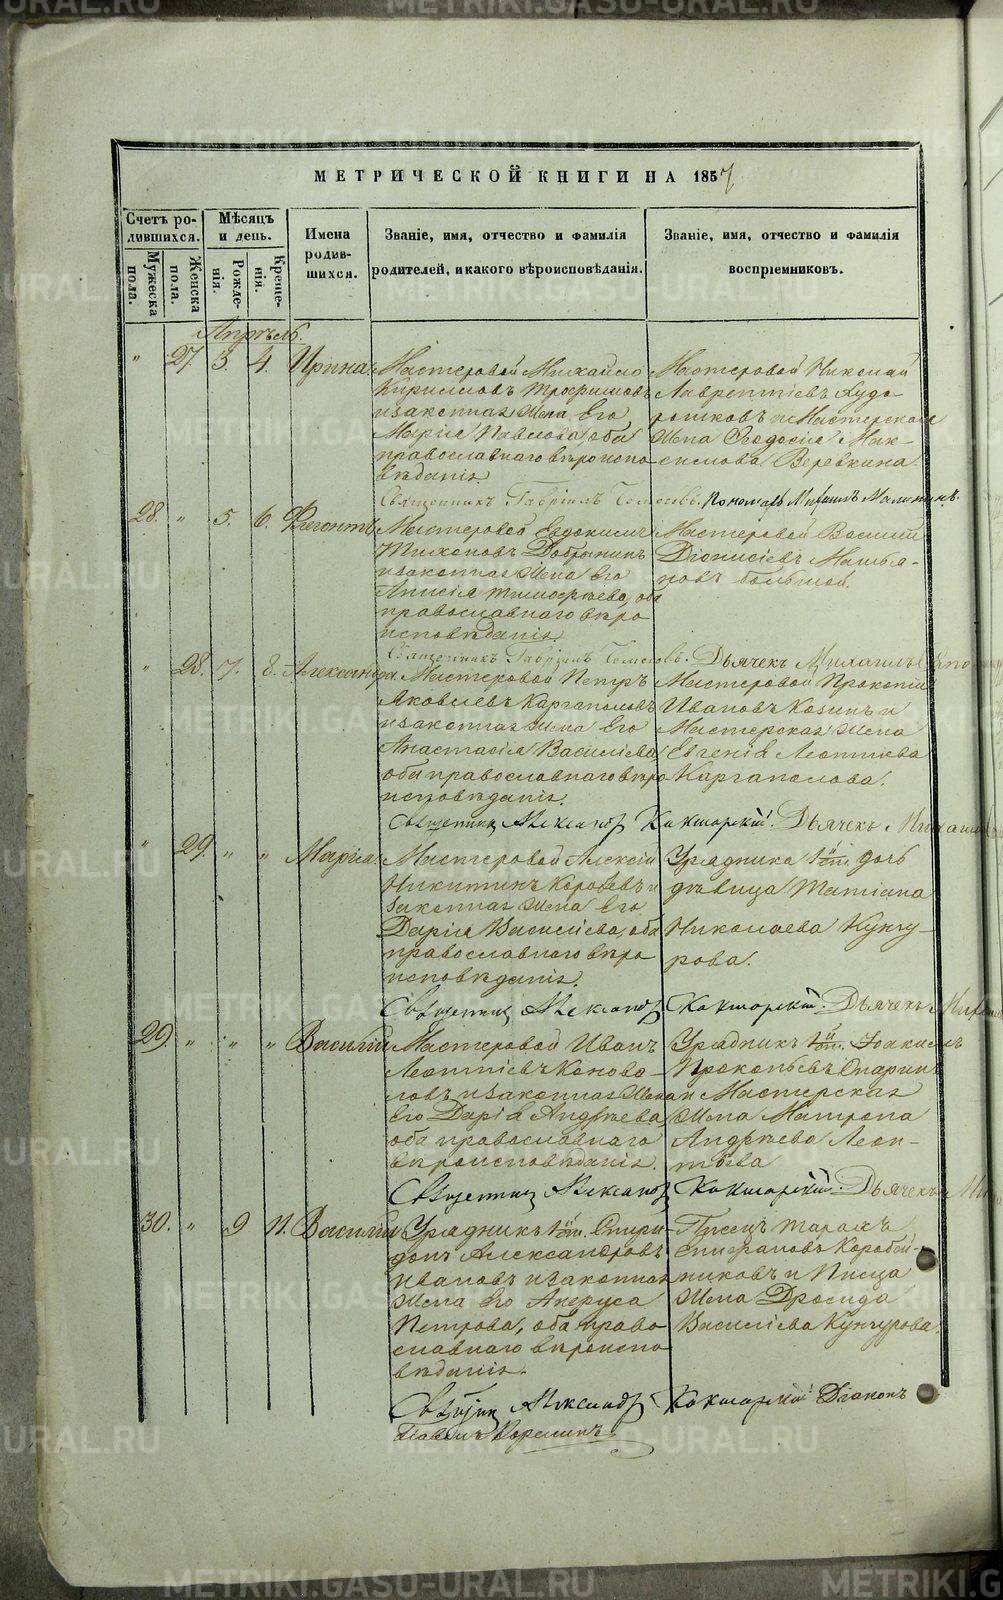 МЕТРИЧЕСКОЙ КНИГИ НА 1857
Счетъ родившихся.
Мужеска пола.
Женска пола.
Мѣсяцъ и день.
Рожденія.
Крещенія.
Имена родившихся.
Званіе, имя, отчество и фамилія родителей, и какого вѣроисповѣданія.
Званіе, имя, отчество и фамилія воспріемниковъ.
Апрѣль.
" 27. 3. 4. Ирина.
Мастеровой Михайло
Кирилловъ Трофимовъ
и законная жена Его
Марія Павлова, оба
православнаго вѣроиспо
вѣданія
Мастеровой Николай
Лаврентіевъ Худо
рошковъ и Мастерская
жена Ѳеодосія Мак
симова Веревкина.
Священникъ Гавріилъ Пономарь Михаилъ
28. " 5. 6.
Мастеровой Евдокимъ
Тихоновъ Добрынинъ
и законная жена Его
Анисія Тимофѣева, оба
православнаго вѣро
исповѣданія.
Мастеровой Василій
Діонисіевъ
новъ большой.
Священникъ Гавріилъ Дьячекъ Михаилъ
" 28. 7. 8. Александра.
Мастеровой Петръ
Яковлевъ Каргаполовъ
и законная жена Его
Анастасія Василіева
оба православнаго вѣро
исповѣданія.
Мастеровой Прокопій
Ивановъ Козинъ и
Мастерская жена
Евгенія Леонтіева
Каргаполова.
Священникъ Александр Кокшарскій. Дьячекъ Михаил
" 29. " " Марія.
Мастеровой Алексій
Никитинъ Коровевъ и
законная жена Его
Дарія Василіева, оба
православнаго вѣро
исповѣданія.
Урядника 1й ст. дочь
дѣвица Татіана
Николаева Кунгу-
рова.
Священникъ Александр Кокшарскій. Дьячекъ
29. " " " Василій
Мастеровой Иванъ
Леонтіевъ Коново-
ловъ и законная жена
его Дарія Андрѣева
оба православнаго
вѣроисповѣданія.
Урядникъ 1й ст. Іоакимъ
Прокопьевъ Опаринъ
и Мастерская
жена Матрона
Андрѣева Леон-
тьева
Священникъ Александр Кокшарскій. Дьячекъ
30. " 9 11. Василій
Урядникъ 1й ст. Спири
донъ Александровъ
Ивановъ и законная
жена его
Петрова, оба право
славнаго вѣроиспо
вѣданія.
Писецъ Тарасъ
Епифановъ Коробей-
никовъ и Писца
жена Дросида
Василіева Кунгурова.
Священникъ Александр Кокшарскій Діаконъ
Павелъ
METRIKI.GASO-URAL.RU